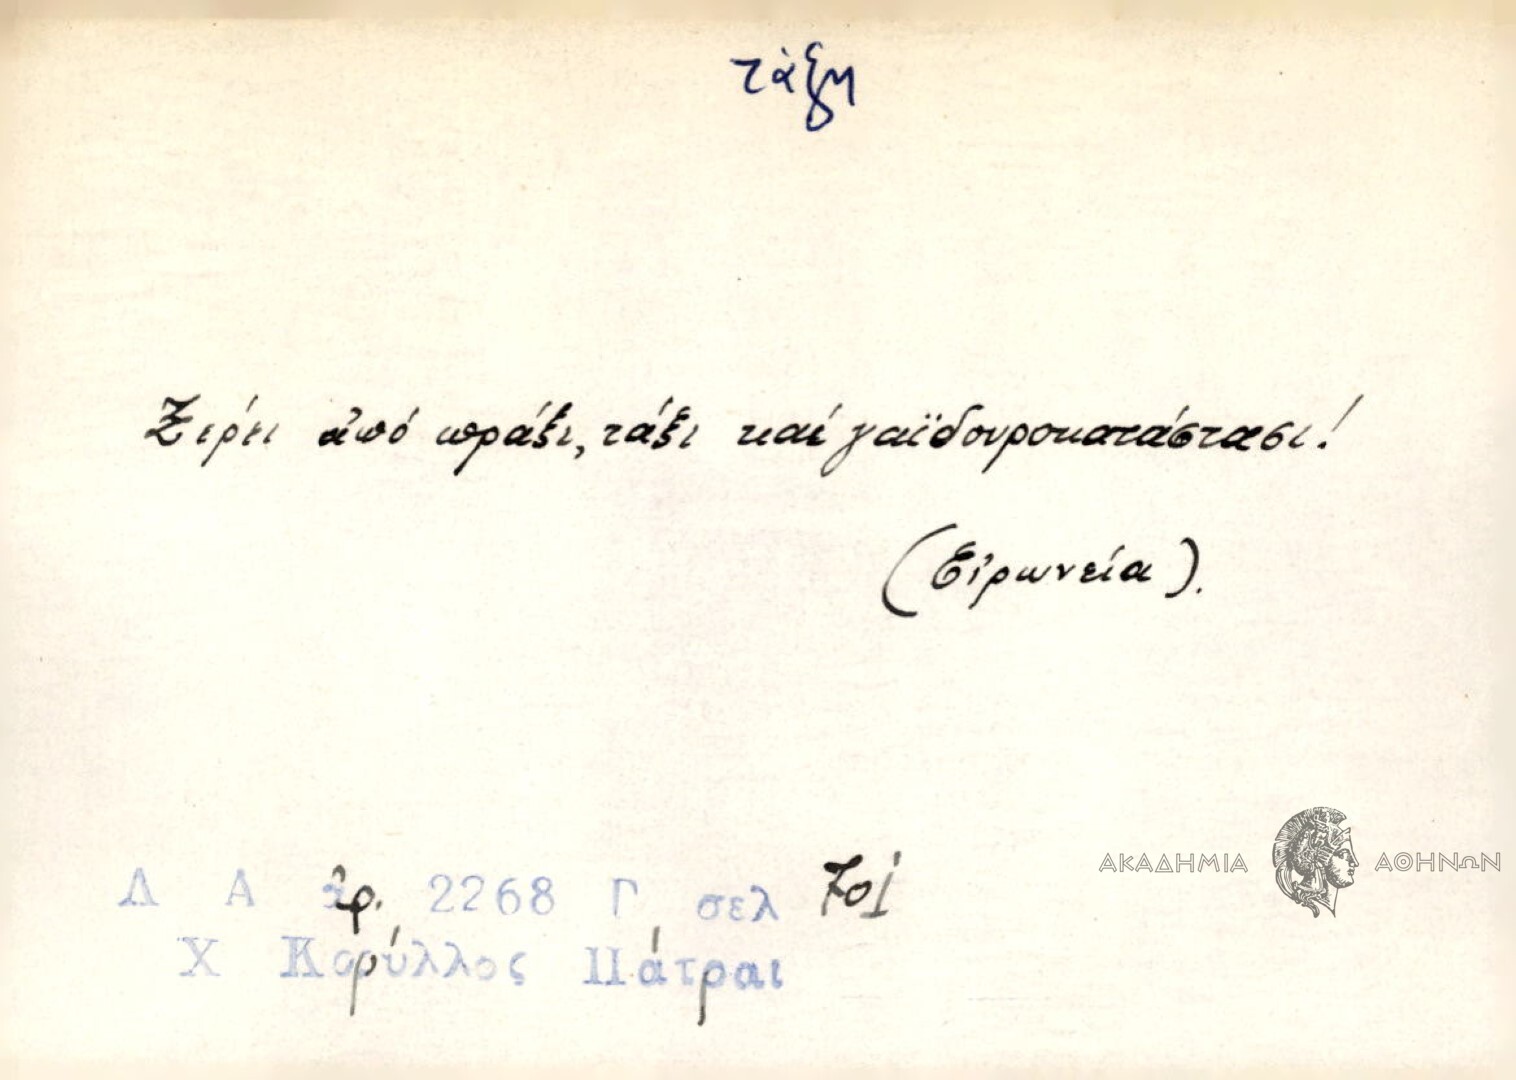 τάξη
Ξέρει ἀπό πρᾶξι, τάξι καί γαϊδουροκατάστασι!
(Εἰρωνεία).
Λ Α ἀρ. 2268 Γ σελ 701
Χ Κορύλλος Πάτραι
ΑΚΑΔΗΜΙΑ ΑΘΗΝΩΝ